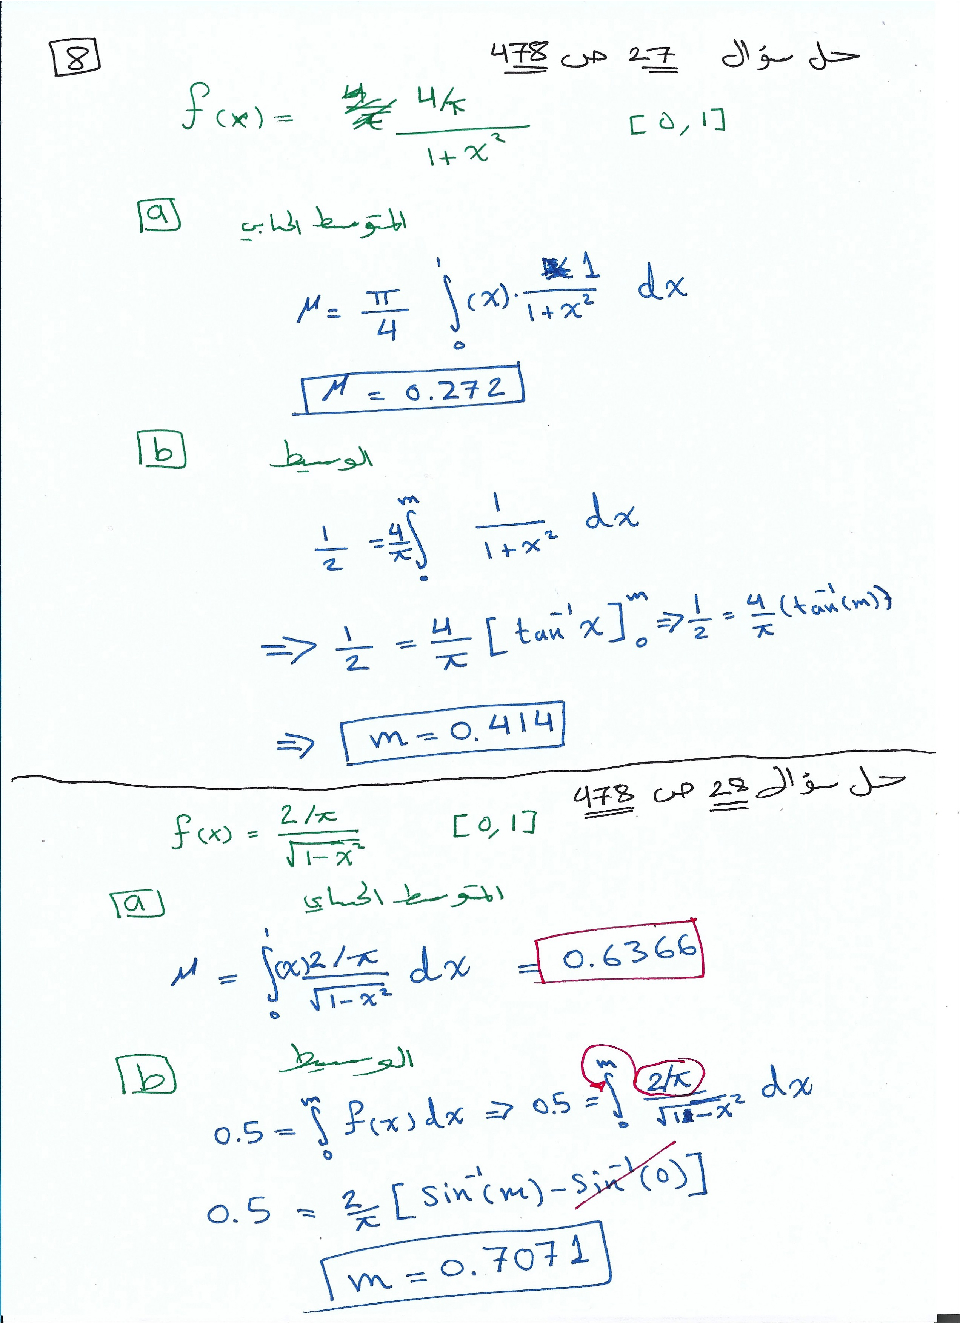 8
حل سؤال 27 ص 478
f(x) = 4/π / 1+x² [0,1]
a المتوسط الحسابي
μ = π/4 ∫₀¹ (x)· 1/1+x² dx
μ = 0.272
b الوسيط
1/2 = 4/π ∫₀ᵐ 1/1+x² dx
⇒ 1/2 = 4/π [tan⁻¹x]₀ᵐ ⇒ 1/2 = 4/π (tan⁻¹(m))
⇒ m = 0.414
حل سؤال 28 ص 478
f(x) = 2/π / √1-x² [0,1]
a المتوسط الحسابي
μ = ∫₀¹ (x) 2/π / √1-x² dx = 0.6366
b الوسيط
0.5 = ∫₀ᵐ f(x)dx ⇒ 0.5 = ∫₀ᵐ 2/π / √1-x² dx
0.5 = 2/π [sin⁻¹(m) - sin⁻¹(0)]
m = 0.7071